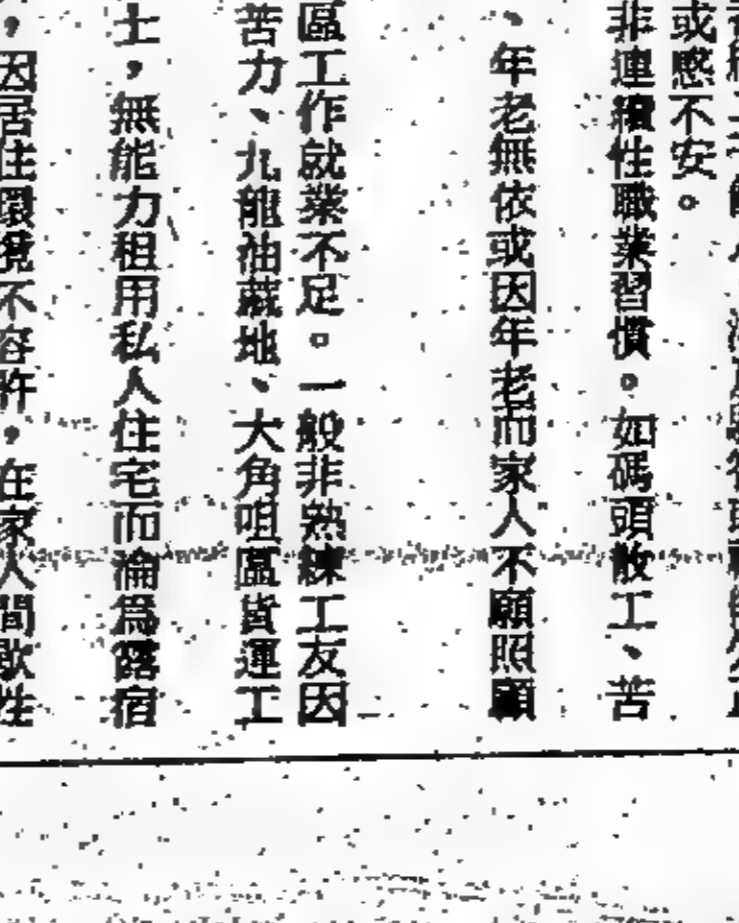 或感不安。
非連續性職業習慣。如碼頭散工、苦
、年老無依或因年老而家人不願照顧
區工作就業不足。一般非熟練工友因
苦力、九龍油蔴地、大角咀區貨運工
士，無能力租用私人住宅而淪爲露宿
，因居住環境不容許，在家人間歇性